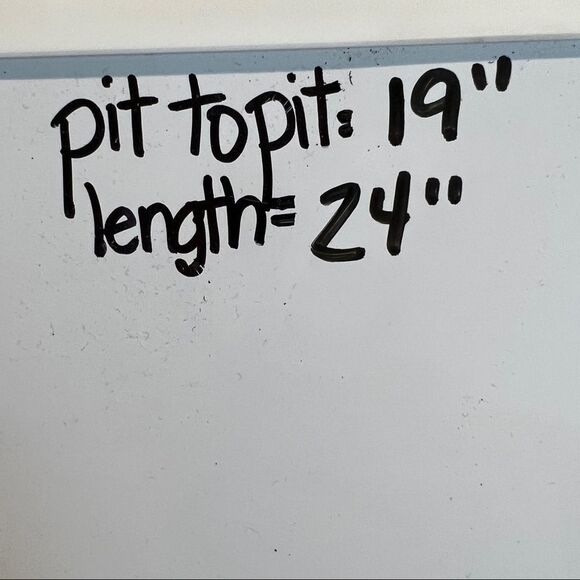 pit to pit: 19"
length= 24"